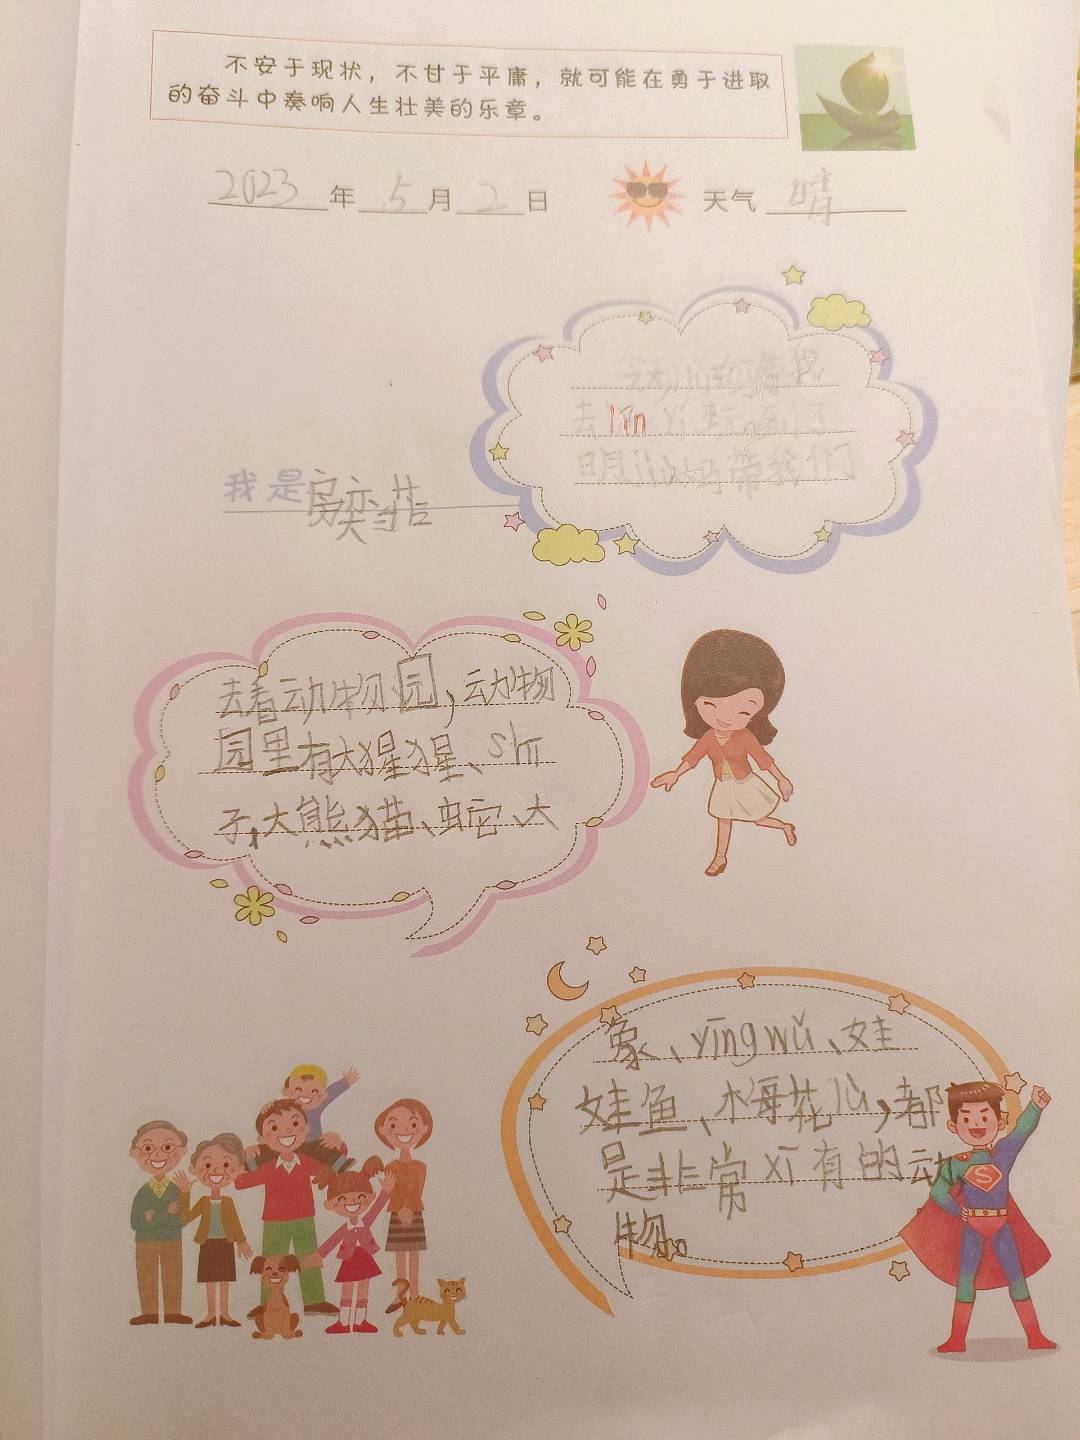 不安于现状，不甘于平庸，就可能在勇于进取
的奋斗中奏响人生壮美的乐章。
2023年5月2日 天气 晴
今天小妈带我
去 玩。
明 妈带我们
我是房奕
去看动物园，动物
园里有大猩猩、shī
子，大熊猫、蛇、大
象、yīng wǔ、娃
娃鱼、梅花lù，都
是非常xī有的动
物。
S